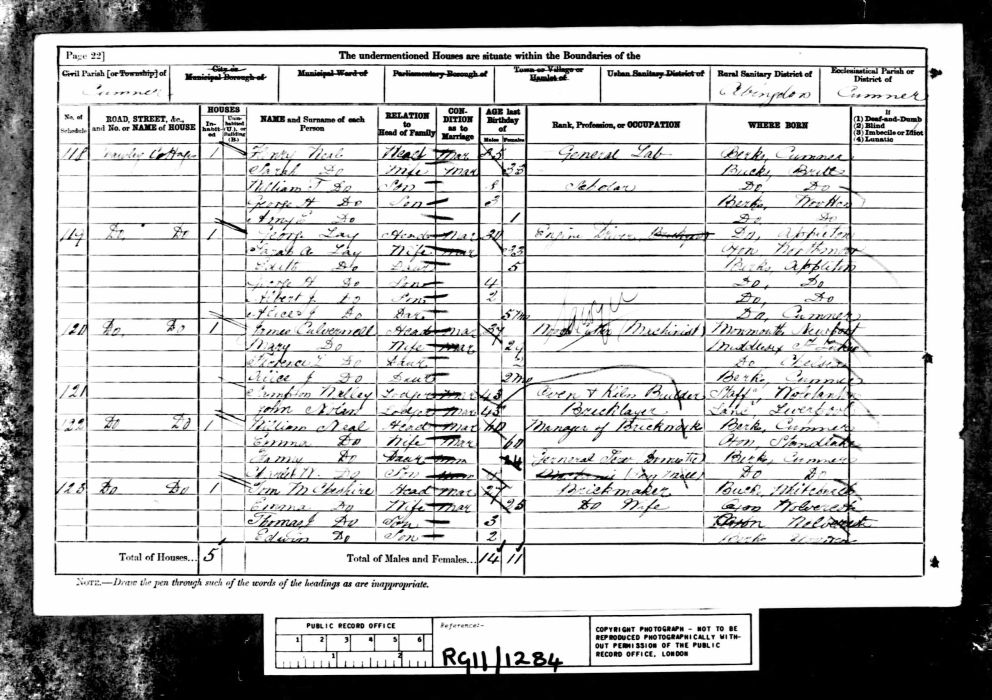 Page 22] The undermentioned Houses are situate within the Boundaries of the
Civil Parish [or Township] of City or Municipal Borough of Municipal Ward of Parliamentary Borough of Town or Village or Hamlet of Urban Sanitary District of Rural Sanitary District of Ecclesiastical Parish or District of
Cumner Abingdon Cumner
No. of Schedule ROAD, STREET, &c., and No. or NAME of HOUSE HOUSES Inhabited Uninhabited (U.), or Building (B.) NAME and Surname of each Person RELATION to Head of Family CONDITION as to Marriage AGE last Birthday of Males Females Rank, Profession, or OCCUPATION WHERE BORN If (1) Deaf-and-Dumb (2) Blind (3) Imbecile or Idiot (4) Lunatic
118 1 Henry Neal Head Mar 35 General Lab Berks, Cumner
Sarah Do Wife Mar 33 Bucks,
William T Do Son 8 Scholar Do, Do
George H Do Son 3 Berks,
Do 1 Do, Do
119 Do, Do 1 George Lay Head Mar 30 Engine Driver Do, Appleton
Sarah A Lay Wife Mar 23 Oxon
Edith Do Daur 5 Berks, Appleton
George H Do Son 4 Do, Do
Albert J Do Son 2 Do, Do
Alice J Do Dar 5 Mo Do, Cumner
120 Do, Do 1 James Head Mar 37 (Machinist) Monmouth, Newport
Mary Do Wife Mar 29 Middlesex St Lukes
Florence Do Daur Do Chelsea
Alice J Do Daur 2 Mo Berks, Cumner
121 Lodger Mar 43 Oven & Kiln Builder Staff,
John Nolan Lodger Mar 45 Bricklayer Lanc, Liverpool
122 Do Do 1 William Neal Head Mar 60 Manager of Berks, Cumner
Emma Do Wife Mar 60 Oxon, Standlake
Do Daur 24 General Berks, Cumner
Do Son Do Do
123 Do Do 1 Tom M Cheshire Head Mar 27 Brickmaker Bucks,
Emma Do Wife Mar 25 Do Wife Oxon
Thomas J Do Son 3 Oxon
Edwin Do Son 2 Berks
Total of Houses... 5 Total of Males and Females... 14 11
NOTE.—Draw the pen through such of the words of the headings as are inappropriate.
PUBLIC RECORD OFFICE
1 2 3 4 5 6
1 2
Reference:-
RG11/1284
COPYRIGHT PHOTOGRAPH - NOT TO BE
REPRODUCED PHOTOGRAPHICALLY WITH-
OUT PERMISSION OF THE PUBLIC
RECORD OFFICE, LONDON